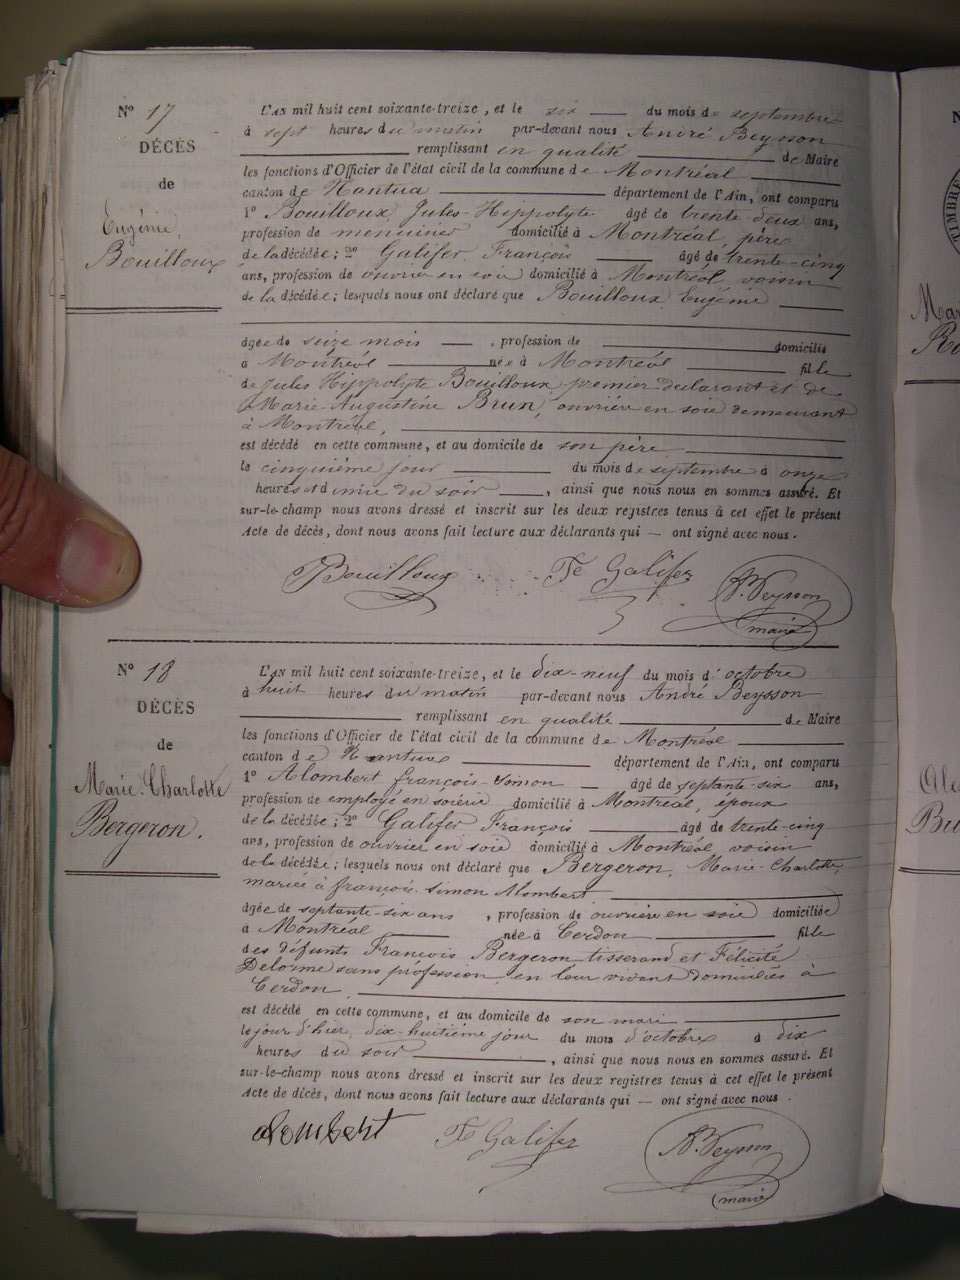 N° 17
DÉCÈS
de
Eugénie
Bouilloux
L'AN mil huit cent soixante-treize, et le six du mois de septembre
à sept heures du matin par-devant nous André Beysson
remplissant en qualité de Maire
les fonctions d'Officier de l'état civil de la commune de Montréal
canton de Nantua département de l'Ain, ont comparu
1° Bouilloux, Jules-Hippolyte âgé de trente-deux ans,
profession de menuisier domicilié à Montréal, père
de la décédée; 2° Galifer, François âgé de trente-cinq
ans, profession de ouvrier en soie domicilié à Montréal, voisin
de la décédée; lesquels nous ont déclaré que Bouilloux Eugénie
âgée de seize mois, profession de domicilié
à Montréal née à Montréal fille
de Jules Hippolyte Bouilloux premier déclarant et de
Marie-Augustine Brun, ouvrière en soie demeurant
à Montréal,
est décédé en cette commune, et au domicile de son père
le cinquième jour du mois de septembre à onze
heures et demie du soir, ainsi que nous nous en sommes assuré. Et
sur-le-champ nous avons dressé et inscrit sur les deux registres tenus à cet effet le présent
Acte de décès, dont nous avons fait lecture aux déclarants qui — ont signé avec nous.
Bouilloux Fs Galifer A. Beysson
maire
N° 18
DÉCÈS
de
Marie-Charlotte
Bergeron.
L'AN mil huit cent soixante-treize, et le dix-neuf du mois d'octobre
à huit heures du matin par-devant nous André Beysson
remplissant en qualité de Maire
les fonctions d'Officier de l'état civil de la commune de Montréal
canton de Nantua département de l'Ain, ont comparu
1° Alombert françois-Simon âgé de septante-six ans,
profession de employé en soierie domicilié à Montréal, époux
de la décédée; 2° Galifer François âgé de trente-cinq
ans, profession de ouvrier en soie domicilié à Montréal, voisin
de la décédée; lesquels nous ont déclaré que Bergeron, Marie-Charlotte,
mariée à françois-Simon Alombert
âgée de septante-six ans, profession de ouvrière en soie domiciliée
à Montréal née à Cerdon fille
des défunts François Bergeron tisserand et Félicité
Delorme sans profession, en leur vivant domiciliés à
Cerdon
est décédé en cette commune, et au domicile de son mari
le jour d'hier, dix-huitième jour du mois d'octobre à dix
heures du soir, ainsi que nous nous en sommes assuré. Et
sur-le-champ nous avons dressé et inscrit sur les deux registres tenus à cet effet le présent
Acte de décès, dont nous avons fait lecture aux déclarants qui — ont signé avec nous.
alombert Fs Galifer A. Beysson
(maire)
TIMBRE